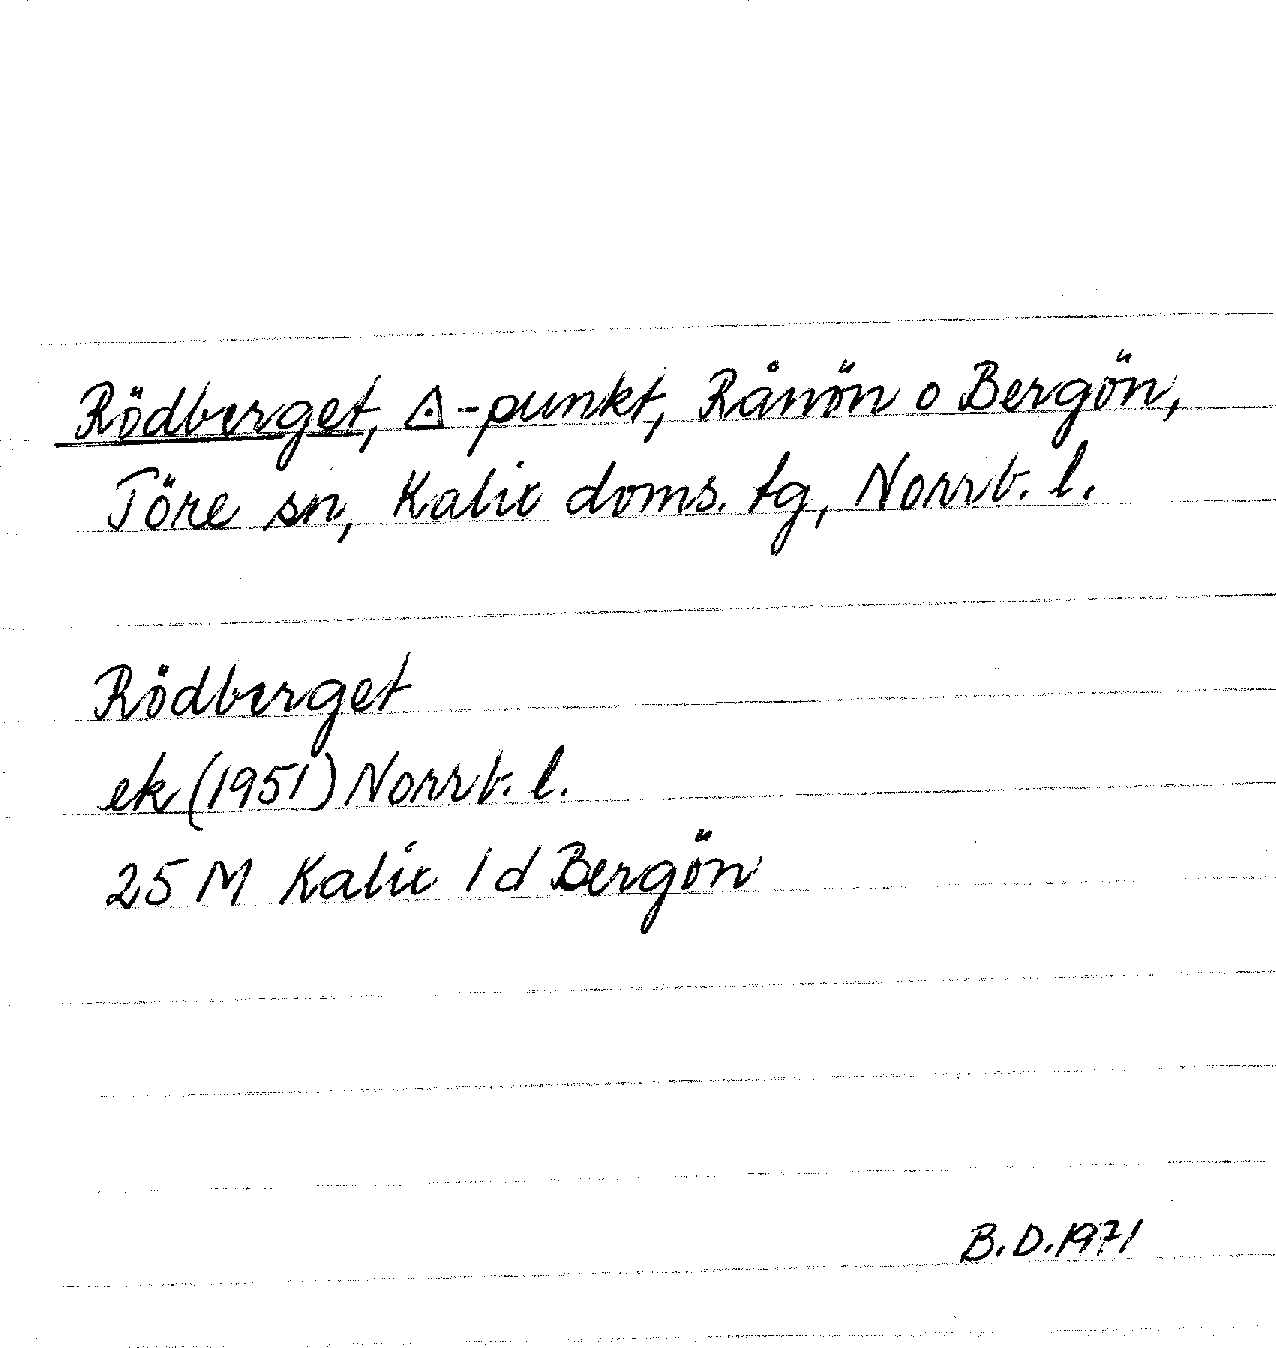 Rödberget, ◬-punkt, Rånön o Bergön,
Töre sn, Kalix doms. tg, Norrb. l.
Rödberget
ek (1951) Norrb. l.
25 M Kalix 1 d Bergön
B.D. 1971